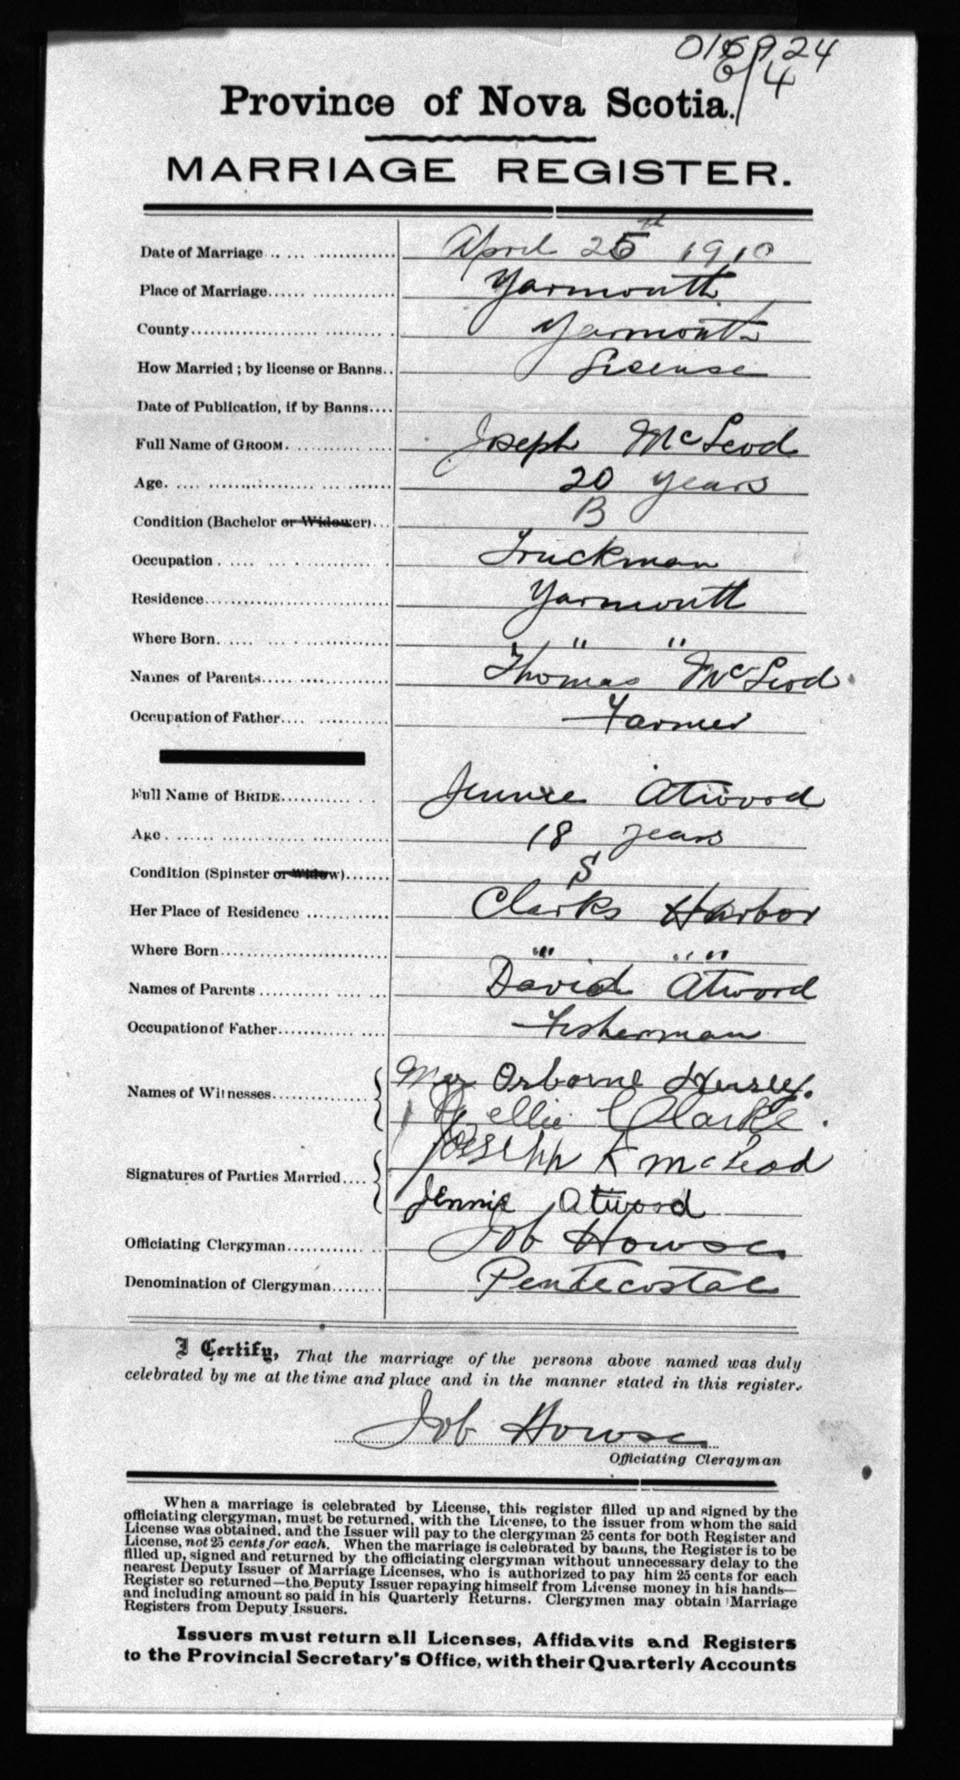 Province of Nova Scotia.
MARRIAGE REGISTER.
Date of Marriage April 25th 1910
Place of Marriage Yarmouth
County Yarmouth
How Married; by license or Banns License
Date of Publication, if by Banns
Full Name of GROOM Joseph McLeod
Age 20 years
Condition (Bachelor or Widower) B
Occupation Truckman
Residence Yarmouth
Where Born " "
Names of Parents Thomas McLeod
Occupation of Father Farmer
Full Name of BRIDE Jennie Atwood
Age 18 years
Condition (Spinster or Widow) S
Her Place of Residence Clarks Harbor
Where Born " "
Names of Parents David Atwood
Occupation of Father Fisherman
Names of Witnesses Osborne
Nellie Clarke
Signatures of Parties Married Joseph K McLeod
Jennie Atwood
Officiating Clergyman Job House
Denomination of Clergyman Pentecostal
I Certify, That the marriage of the persons above named was duly
celebrated by me at the time and place and in the manner stated in this register.
Job House
Officiating Clergyman
When a marriage is celebrated by License, this register filled up and signed by the
officiating clergyman, must be returned, with the License, to the issuer from whom the said
License was obtained, and the Issuer will pay to the clergyman 25 cents for both Register and
License, not 25 cents for each. When the marriage is celebrated by banns, the Register is to be
filled up, signed and returned by the officiating clergyman without unnecessary delay to the
nearest Deputy Issuer of Marriage Licenses, who is authorized to pay him 25 cents for each
Register so returned—the Deputy Issuer repaying himself from License money in his hands—
and including amount so paid in his Quarterly Returns. Clergymen may obtain Marriage
Registers from Deputy Issuers.
Issuers must return all Licenses, Affidavits and Registers
to the Provincial Secretary's Office, with their Quarterly Accounts